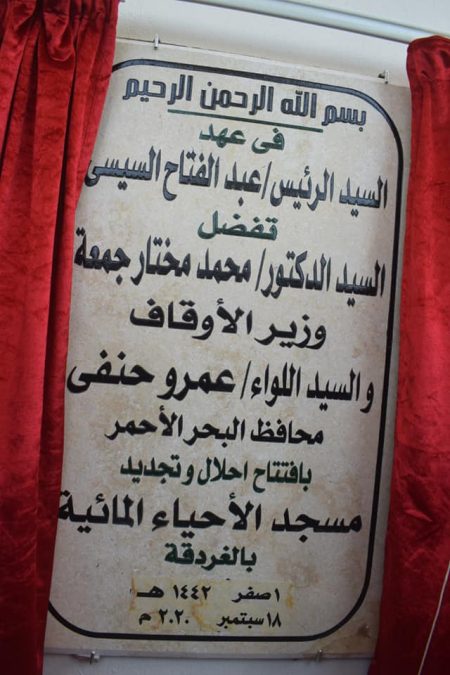 بسم الله الرحمن الرحيم
فى عهد
السيد الرئيس/عبد الفتاح السيسى
تفضل
السيد الدكتور/ محمد مختار جمعة
وزير الأوقاف
و السيد اللواء/ عمرو حنفى
محافظ البحر الأحمر
بافتتاح احلال وتجديد
مسجد الأحياء المائية
بالغردقة
١ صفر ١٤٤٢ هـ
١٨ سبتمبر ٢٠٢٠ م